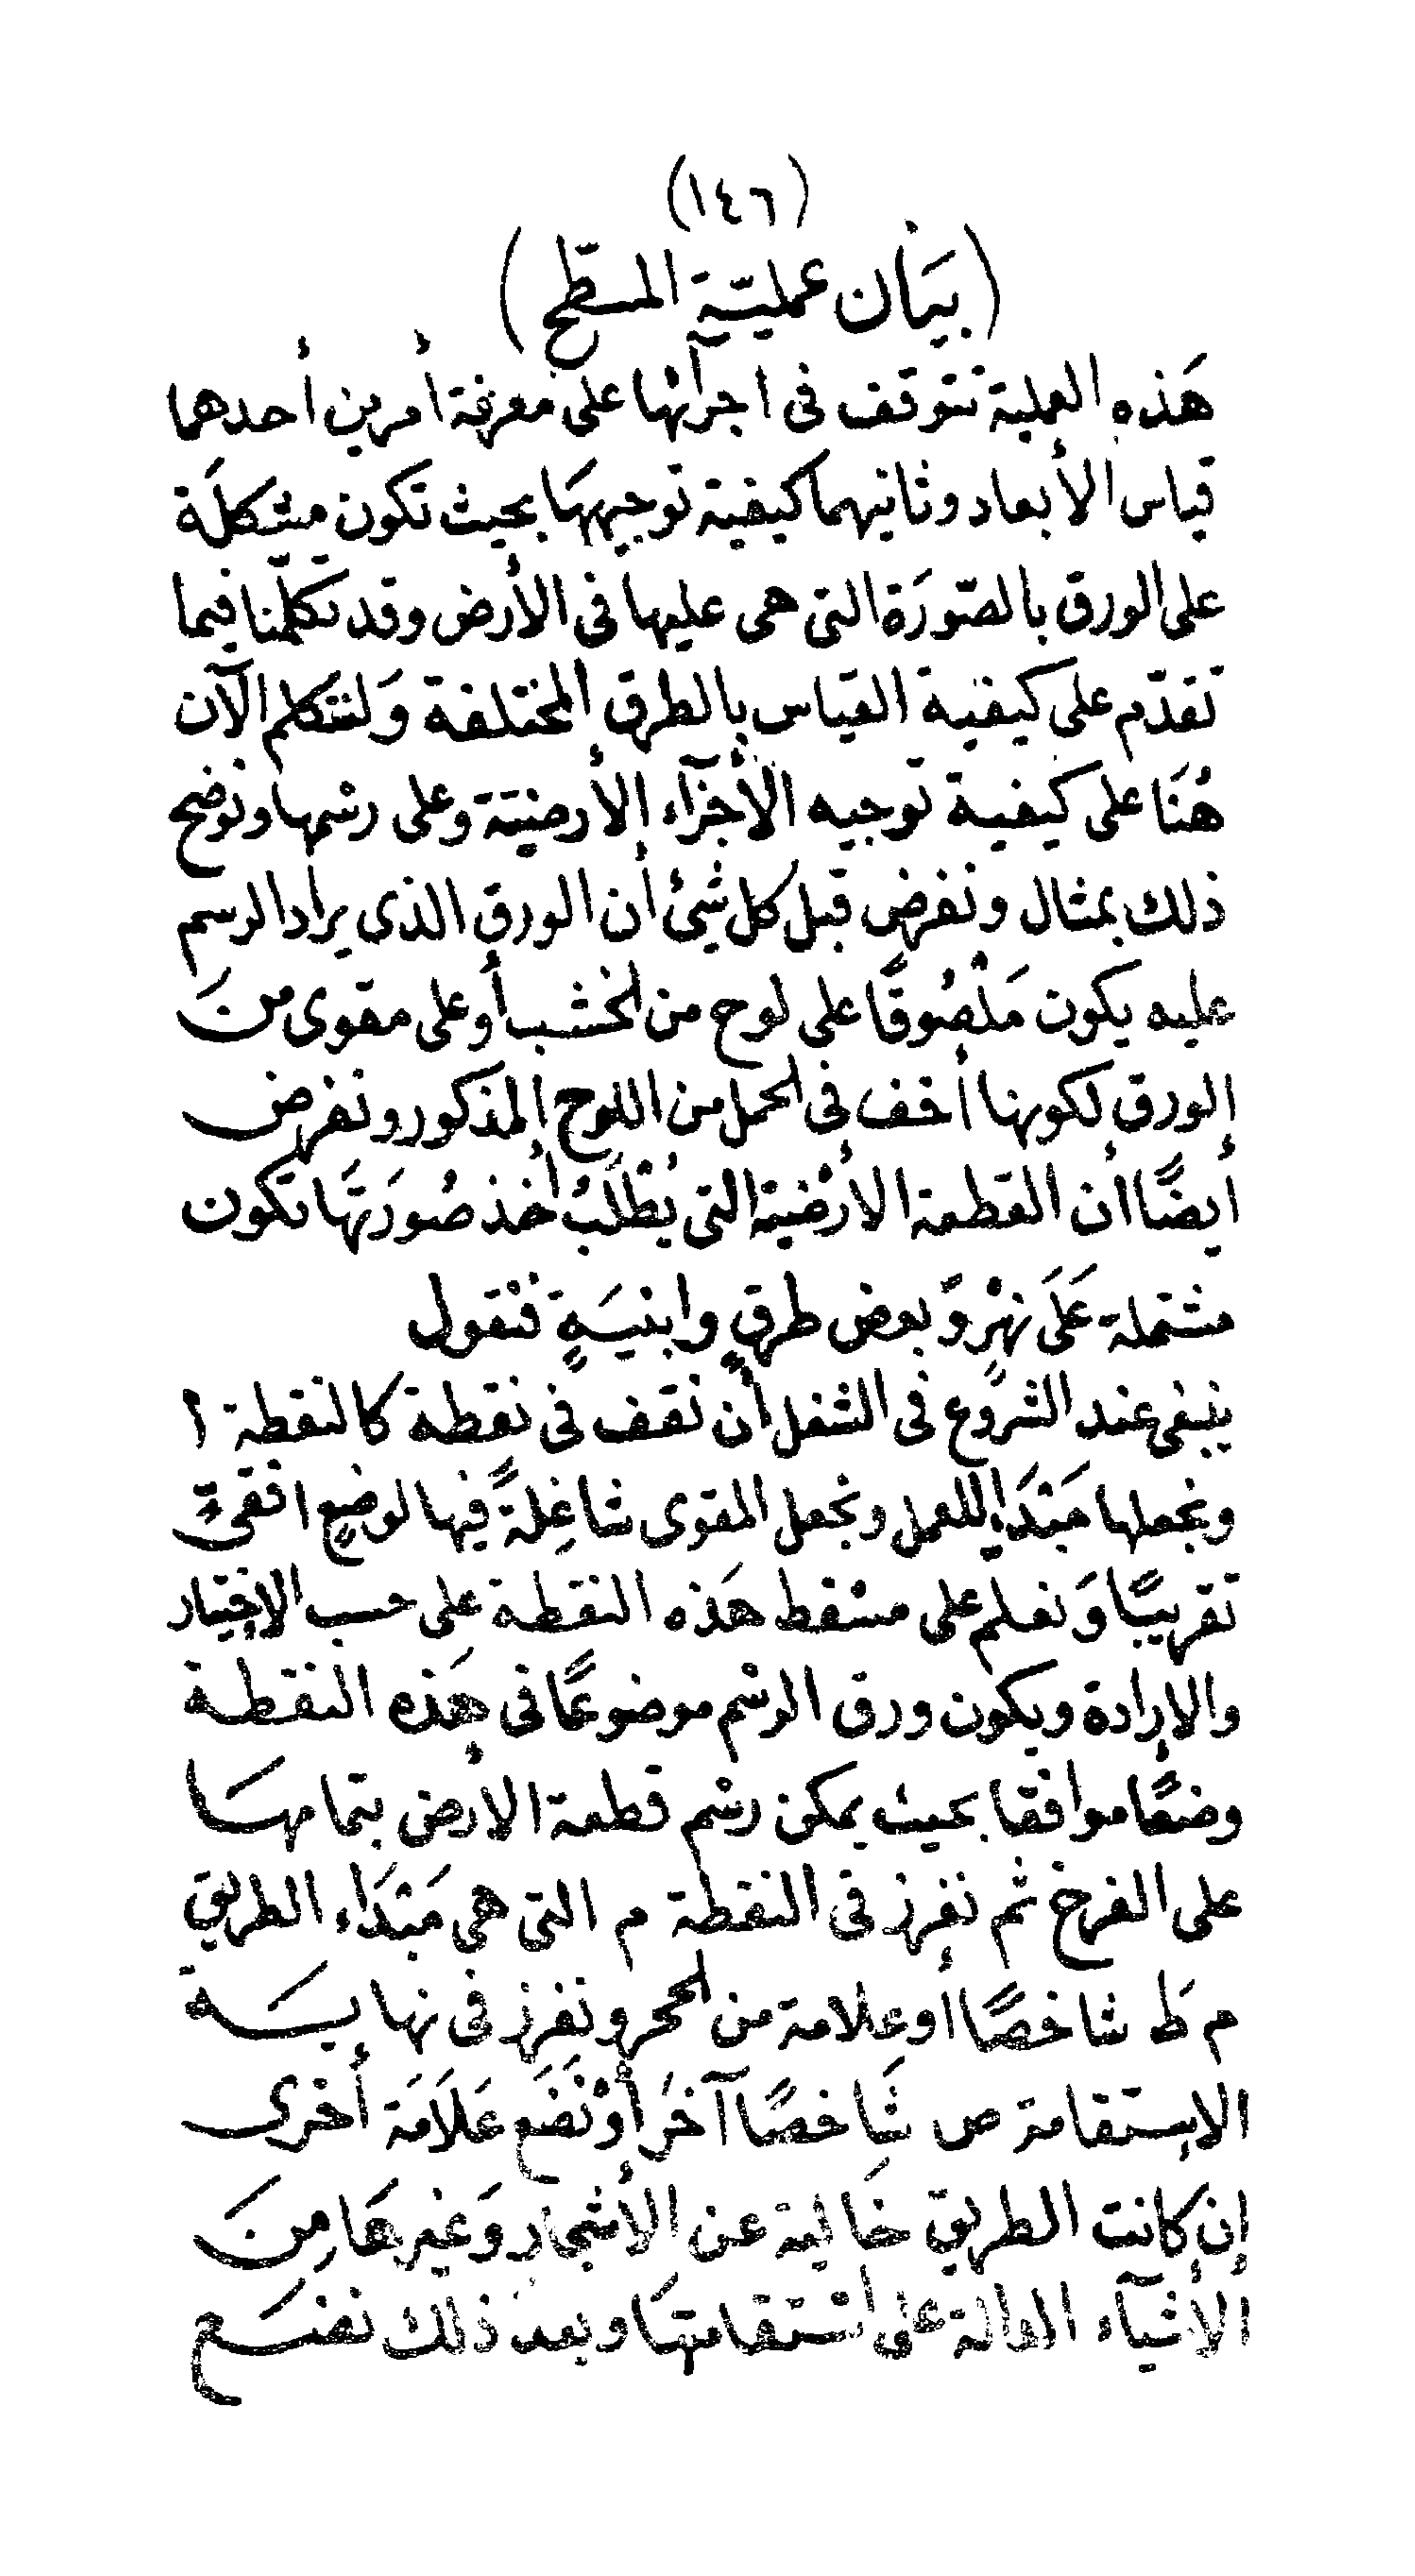 (١٤٦)
(بيَان عمليّة المسطّح)
هَذه العملية تتوقف فى اجرآئها على معرفة أمرين أحدهما
قياس الأبعاد وثانيهما كيفية توجيههَا بحيث تكون مشكلَة
على الورق بالصّورَة التى هى عليها فى الأرض وقد تكلّمنا فيما
تقدّم على كيفية القياس بالطرق المختلفة وَلنتكلم الآن
هُنَا على كيفية توجيه الأجزآء الأرضيّة وعلى رسْمها ونوضح
ذلك بمثال ونفرض قبل كل شئ أن الورق الذى يراد الرسم
عليه يكون مَلْصُوقًا على لوح من الخشب أو على مقوى منَ
الورق لكونها أخف فى الحمل من اللوح المذكور ونفرض
أيضًا أن القطعة الأرْضية التى يُطْلَبُ أخذ صُورَتهَا تكون
مشتملة عَلَى نهْرٍ وَّبعض طرقٍ وابنيَةٍ فنقول
ينبغى عند الشروع فى الشغل أن نقف فى نقطة كالنقطة ؟
ونجعلها مَبْدَاءً للعمل ونجعل المقوى شاغِلةً فيها لوضعٍ افقىٍّ
تقريبًا وَنعلم على مسْقط هَذه النقطة على حسب الاختيار
والإرادة ويكون ورق الرسْم موضوعًا فى هَذه النقطة
وضعًا موافقا بحيث يمكن رسْم قطعة الأرض بتمامهَا
على الفرخ ثم نفرز فى النقطة م التى هى مَبْدَاء الطريق
م ط شاخصًا أو علامة من الحجر ونفرز فى نهايَة
الإستقامة ص شَاخصًا آخرَ أوْ نَضَع عَلَامَة أخرى
إن كانت الطريق خَالية عن الأشجار وَغيرهَا مِنَ
الأشيآء الدالة على استقامتهَا وبعد ذلك نضَع